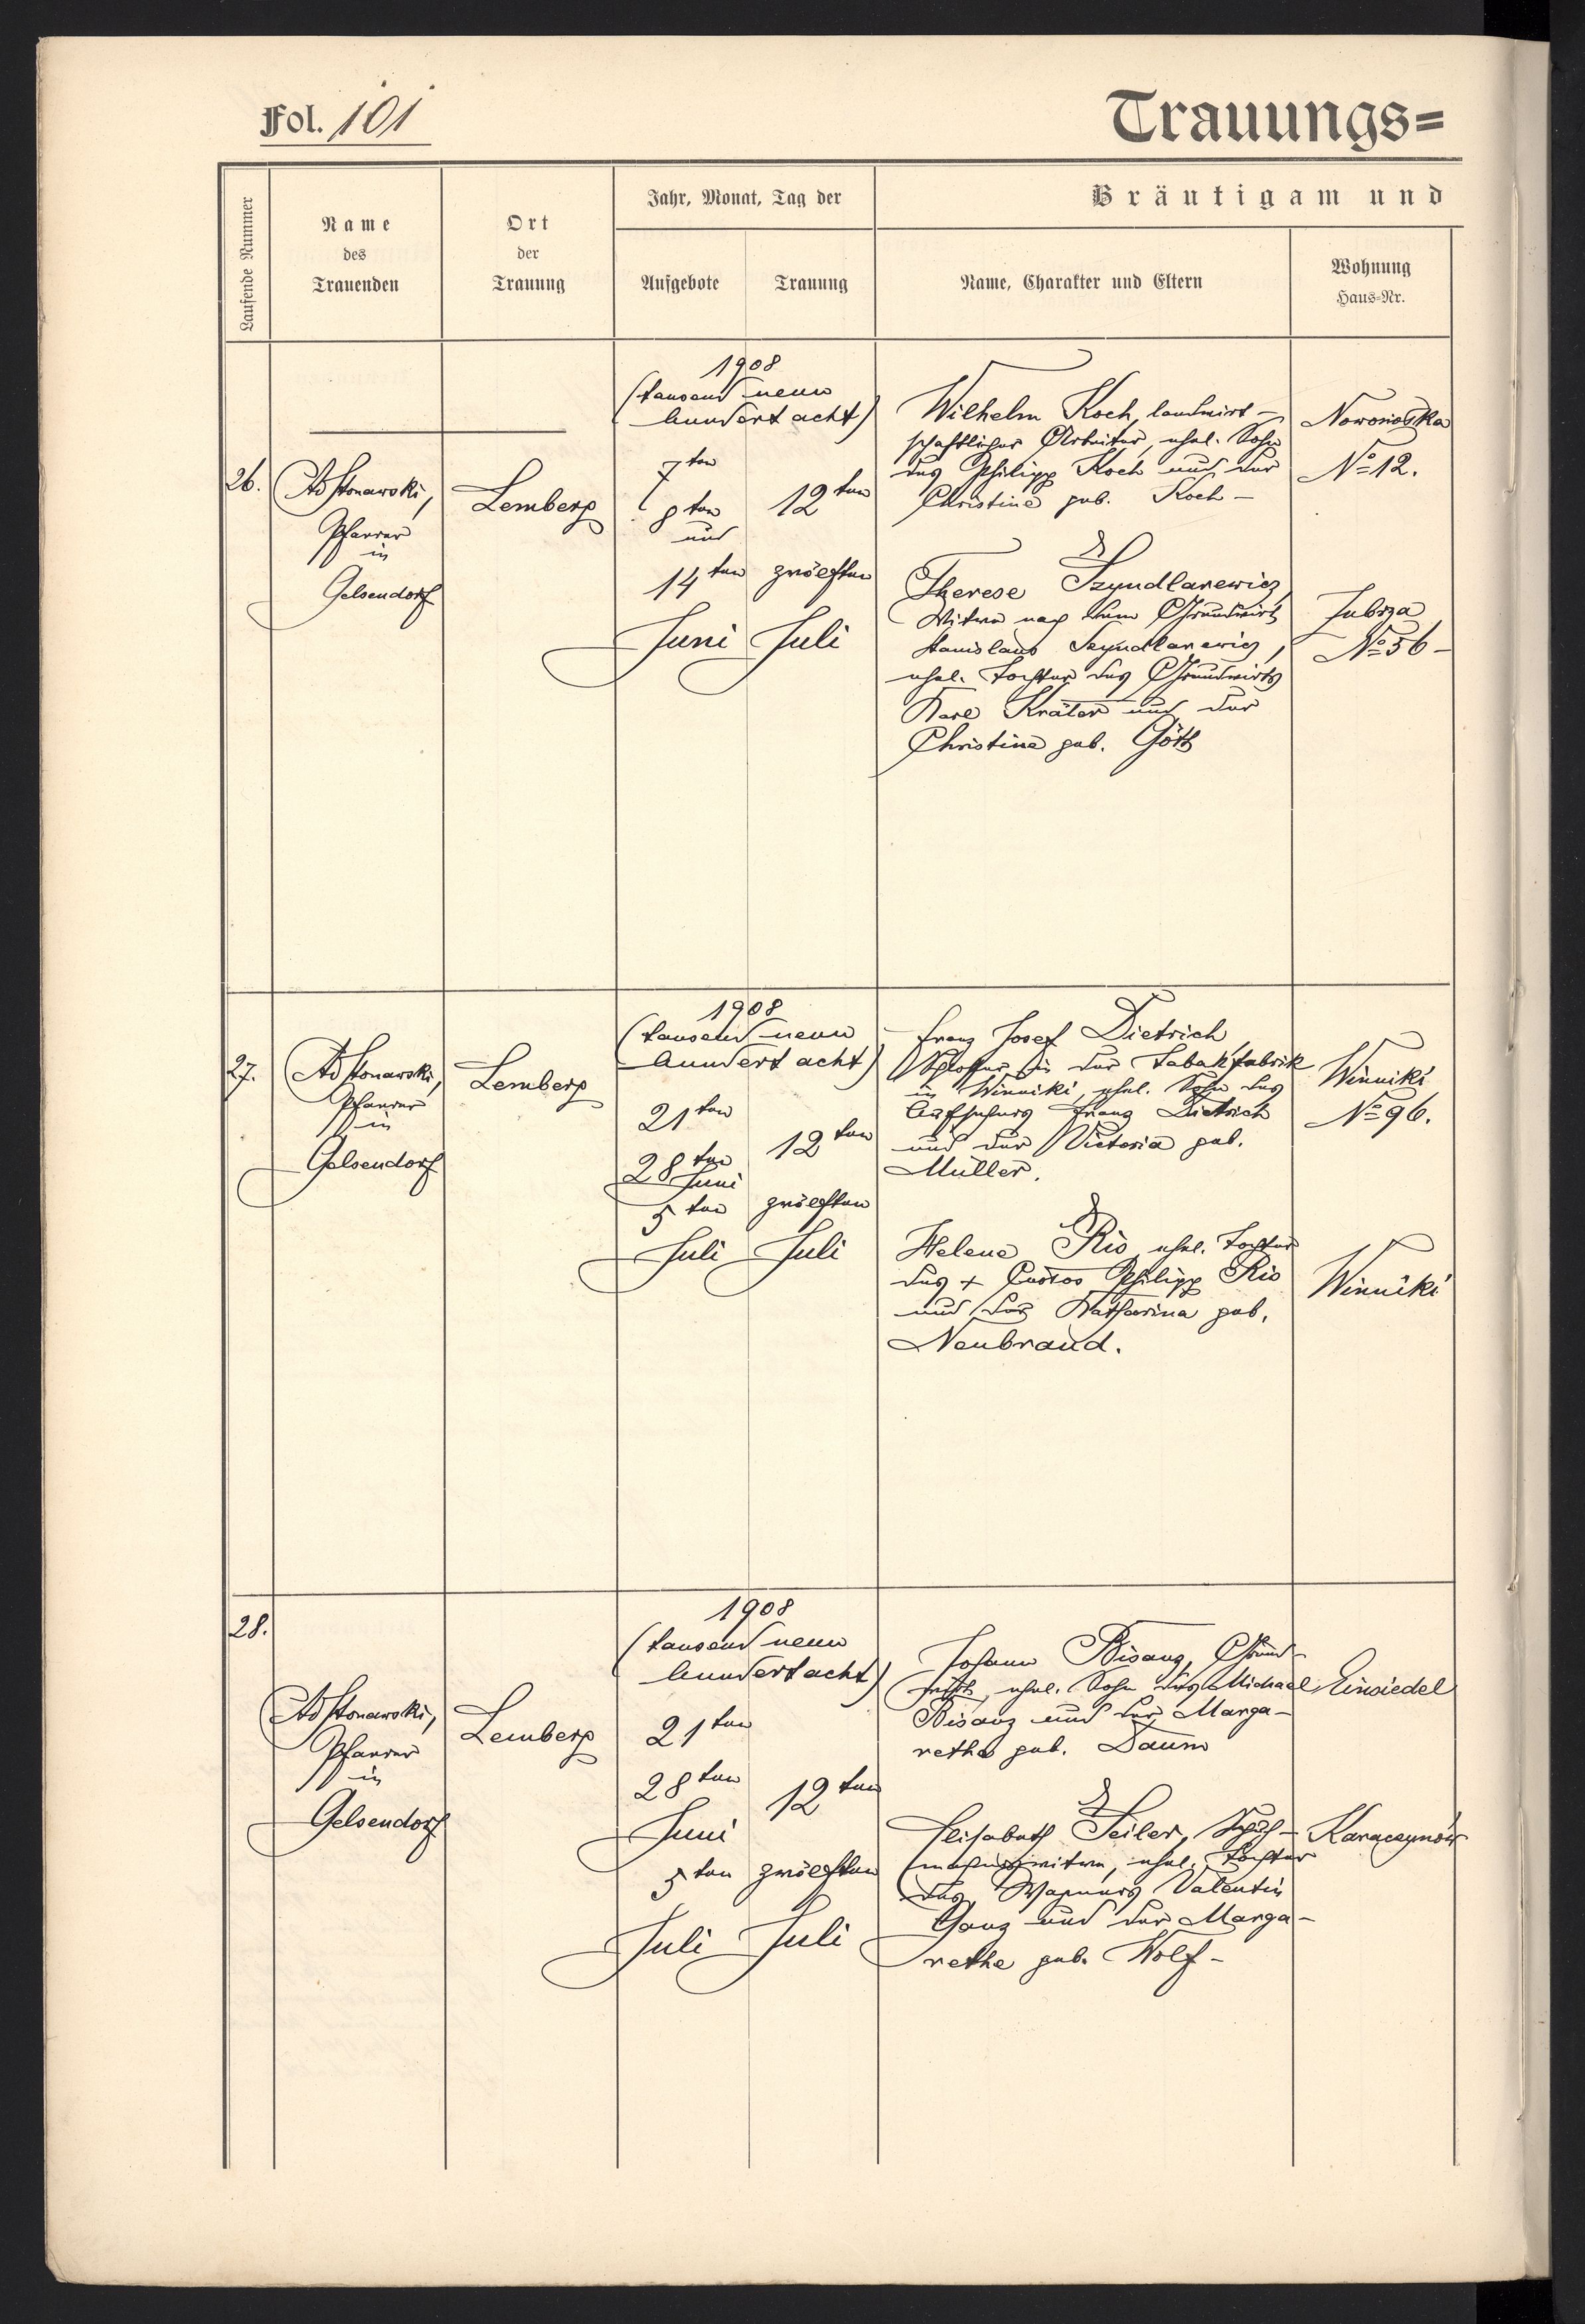 Fol. 101
Trauungs=
Laufende Nummer
Name
des
Trauenden
Ort
der
Trauung
Jahr, Monat, Tag der
Aufgebote
Trauung
Bräutigam und
Name, Charakter und Eltern
Wohnung
Haus=Nr.
26.
Pfarrer
in
Gelsendorf
Lemberg
1908
(tausend neun
hundert acht)
7ten
8ten
und
14ten
Juni
12ten
zwölften
Juli
Wilhelm Koch, landwirt-
schaftlicher Arbeiter, ehel. Sohn
des Philipp Koch und der
Christine geb. Koch -
&
Therese Szyndlarewicz
Witwe nach dem Grundwirt
Stanislaus Szyndlarewicz,
ehel. Tochter des Grundwirts
Karl Kräter und der
Christine geb. Gött
No 12.
No 56 -
27.
Pfarrer
in
Gelsendorf
Lemberg
1908
(tausend neun
hundert acht)
21ten
28ten
Juni
5ten
Juli
12ten
zwölften
Juli
Franz Josef Dietrich
Schlosser in der Tabakfabrik
in Winniki, ehel. Sohn des
Aufsehers Franz Dietrich
und der Victoria geb.
Müller.
&
Helene Ris, ehel. Tochter
des + Custos Philipp Ris
und der Katharina geb.
Neubrand.
Winniki
No 96.
Winniki
28.
Pfarrer
in
Gelsendorf
Lemberg
1908
(tausend neun
hundert acht)
21ten
28ten
Juni
5ten
Juli
12ten
zwölften
Juli
Johann Bisanz, Grund-
wirth, ehel. Sohn des Michael
Bisanz und der Marga-
retha geb. Daum
&
Elisabeth Seiler, Schuh-
macherswitwe, ehel. Tochter
des Wagners Valentin
Ganz und der Marga-
rethe geb. Wolf -
Einsiedel
Karaczynów